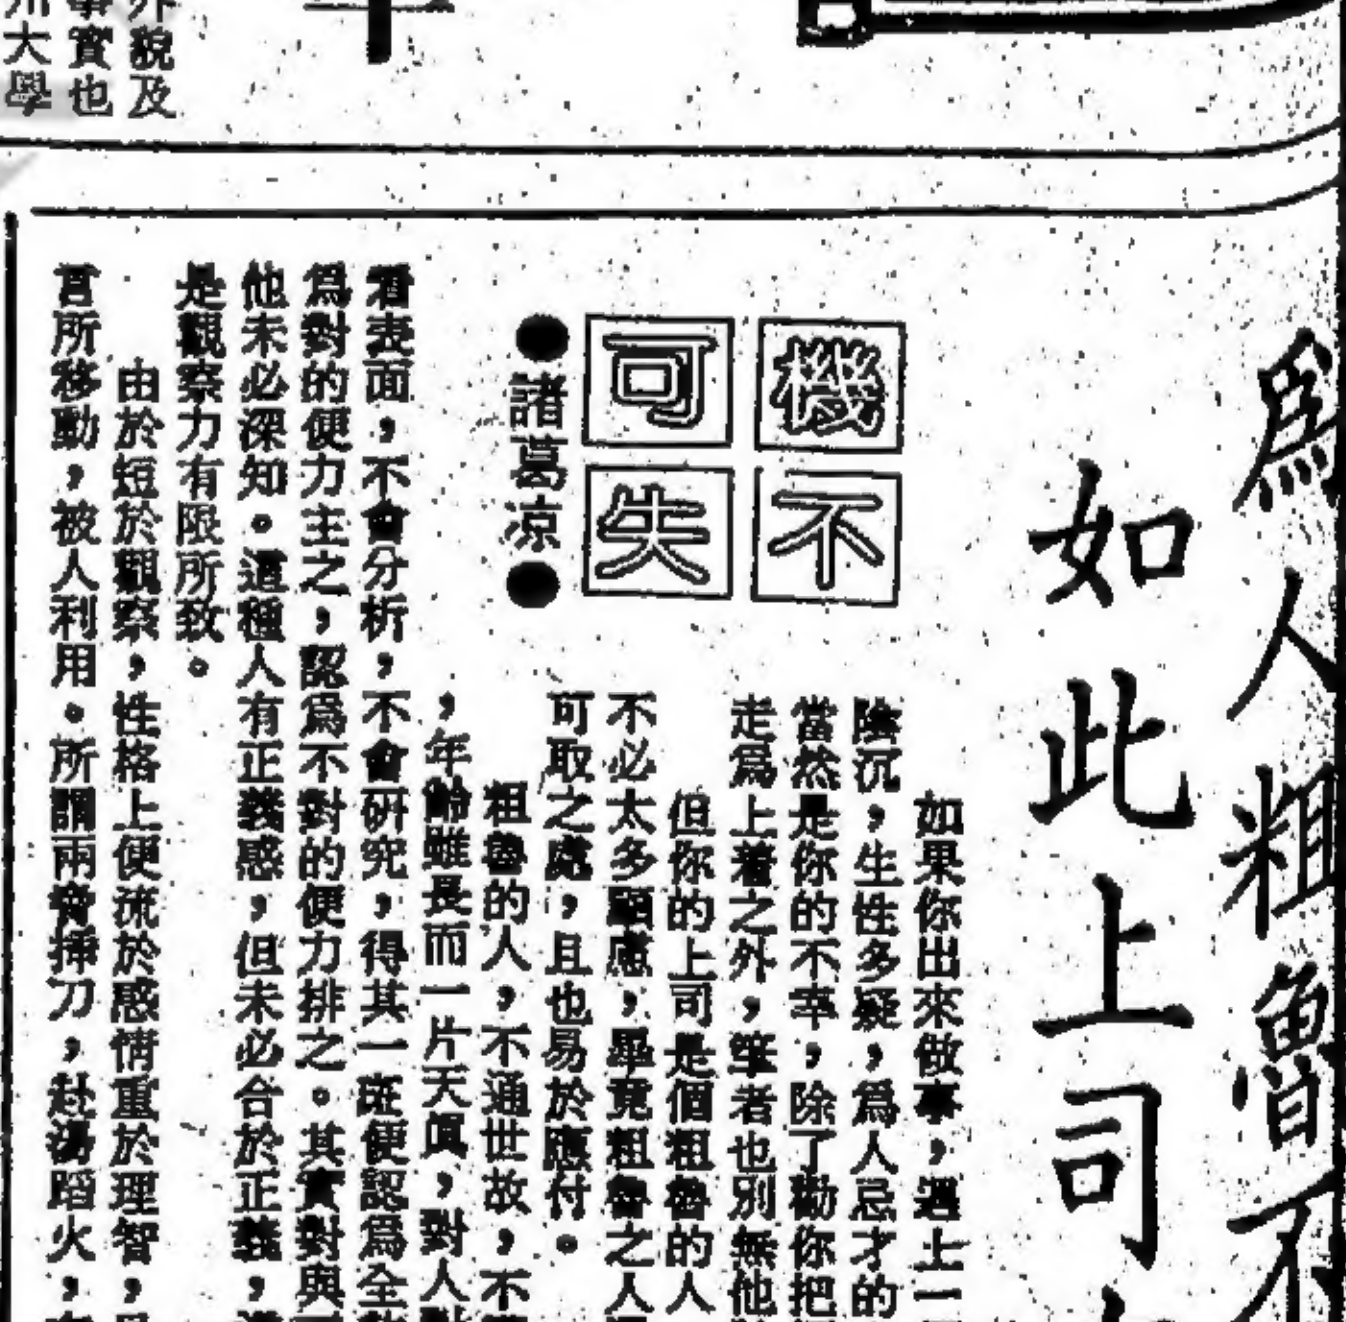 外貌及
事實也
州大學
為人粗魯不
如此上司
機不
可失
●諸葛凉●
如果你出來做事，遇上一
陰沉，生性多疑，為人忌才的
當然是你的不幸，除了勸你把
走為上着之外，筆者也別無他
但你的上司是個粗魯的人
不必太多顧慮，畢竟粗魯之人
可取之處，且也易於應付。
粗魯的人，不通世故，不
，年齡雖長而一片天真，對人對
看表面，不會分析，不會研究，得其一斑便認為全
為對的便力主之，認為不對的便力排之。其實對與
他未必深知。這種人有正義感，但未必合於正義，
是觀察力有限所致。
由於短於觀察，性格上便流於感情重於理智，
言所移動，被人利用。所謂兩脅揷刀，赴湯蹈火，